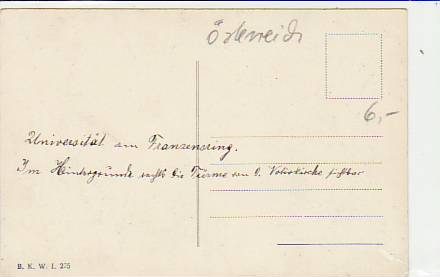 Österreich
6,-
Universität am Franzensring.
Im Hintergrunde rechts die Türme von d. Votivkirche sichtbar
B. K. W. I. 275